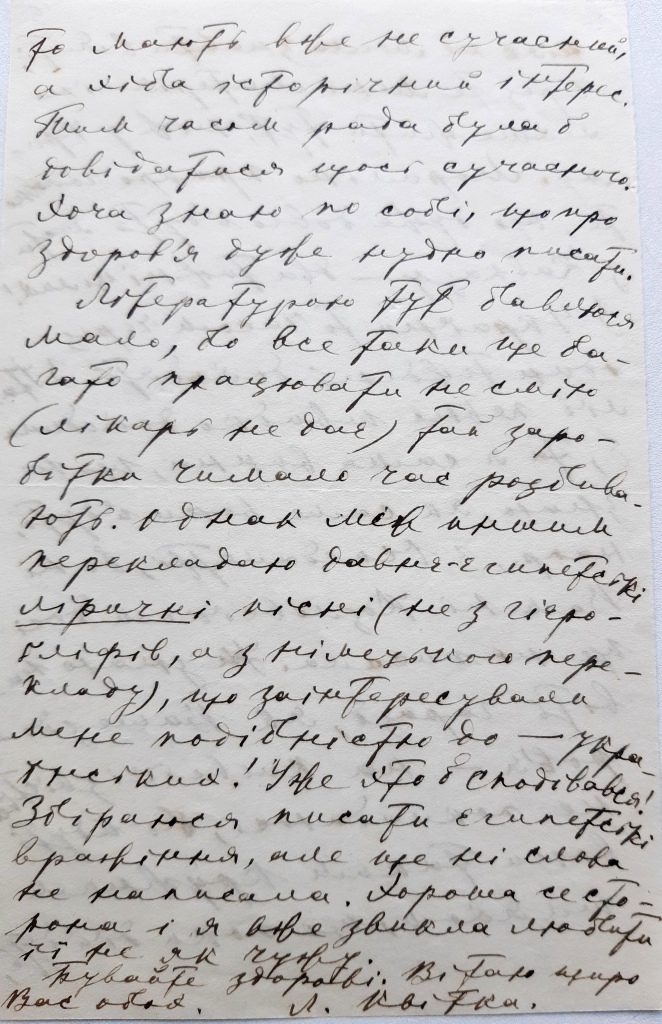 то мають вже не сучасний,
а хіба історічний інтерес.
Тим часом рада була б
довідатися щось сучасного.
Хоча знаю по собі, що про
здоров'я дуже нудно писати.
Літературою тут бавлюся
мало, бо все таки ще ба-
гато працювати не смію
(лікарь не дає) тай заро-
бітки чимало час розбива-
ють. Однак між иншим
перекладаю давнє-египетські
ліричні пісні (не з гієро-
гліфів, а з німецького пере-
кладу), що заінтересували
мене подібністю до — укра-
їнських! Уже хто б сподівався!
Збіраюся писати египетські
вражіння, але ще ні слова
не написала. Хороша се сто-
рона і я вже звикла любити
її не як чужу.
Бувайте здорові. Вітаю щиро
Вас обох. Л. Квітка.